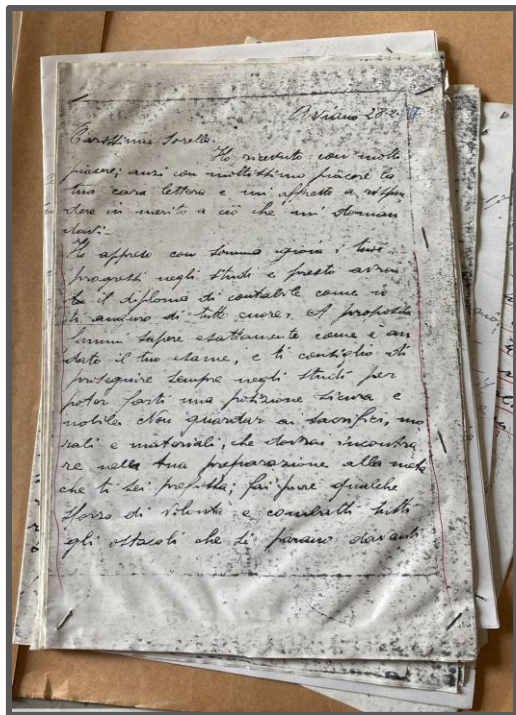 Aviano 28
Carissima Sorella.
Ho ricevuto con molto
piacere; anzi con moltissimo piacere la
tua cara lettera e mi affretto a rispon
dere in merito a ciò che mi doman
davi:-
Ho appreso con somma gioia i tuoi
progressi negli studi e presto avrai
te il diploma di contabile come io
ti auguro di tutto cuore. A proposito
fammi sapere esattamente come è an
dato il tuo esame, e ti consiglio di
proseguire sempre negli studi per
poter farti una posizione sicura e
nobile. Non guardar ai sacrifici, mo
rali e materiali, che dovrai incontra
re nella tua preparazione alla meta
che ti sei prefissa; fai pure qualche
sforzo di volontà e combatti tutti
gli ostacoli che si parano davanti